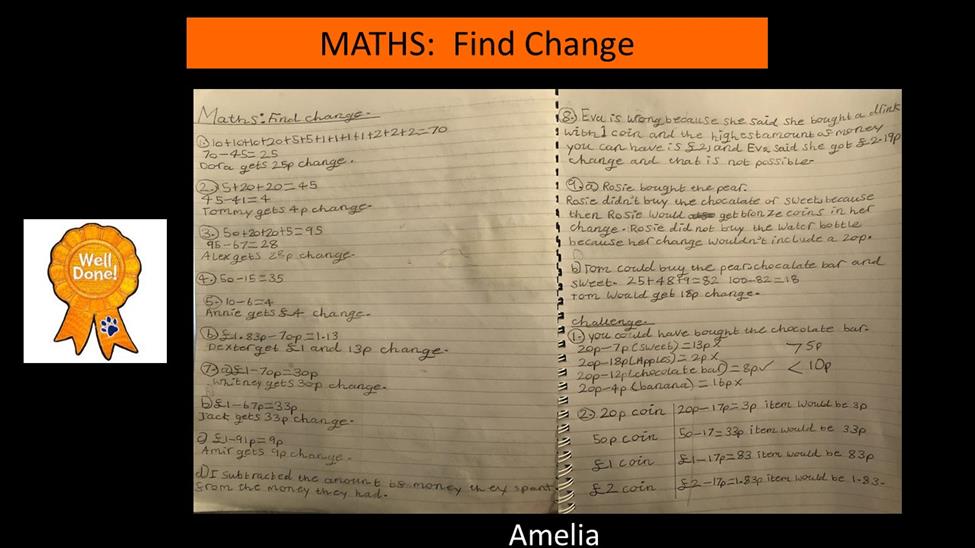 MATHS: Find Change
Well
Done!
Maths: Find change.
1.) 10+10+10+20+5+5+1+1+1+1+2+2+2=70
70-45=25
Dora gets 25p change.
2.) 5+20+20=45
45-41=4
Tommy gets 4p change.
3.) 50+20+20+5=95
95-67=28
Alex gets 28p change.
4.) 50-15=35
5.) 10-6=4
Annie gets £4 change.
6) £1.83p-70p=1.13
Dexter get £1 and 13p change.
7.) a) £1-70p=30p
Whitney gets 30p change.
b) £1-67p=33p
Jack gets 33p change.
c) £1-91p=9p
Amir gets 9p change.
d) I subtracted the amount of money they spent
from the money they had.
8.) Eva is wrong because she said she bought a drink
with 1 coin and the highest amount of money
you can have is £2, and Eva said she got £2.19p
change and that is not possible.
9. a) Rosie bought the pear.
Rosie didn't buy the chocalate or sweet, because
then Rosie would get bronze coins in her
change. Rosie did not buy the water bottle
because her change wouldn't include a 20p.
b) Tom could buy the pear, chocalate bar and
sweet. 25+48+9=82 100-82=18
Tom would get 18p change.
Challenge.
1.) you could have bought the chocolate bar.
20p-7p (sweet) =13p x >5p
20p-18p (Apples) = 2p x
20p-12p (chocolate bar) = 8p ✓ <10p
20p-4p (banana) = 16p x
2.) 20p coin 20p-17p=3p item would be 3p
50p coin 50-17=33p item would be 33p
£1 coin £1-17p=83 item would be 83p
£2 coin £2-17p=1.83p item would be 1.83.
Amelia